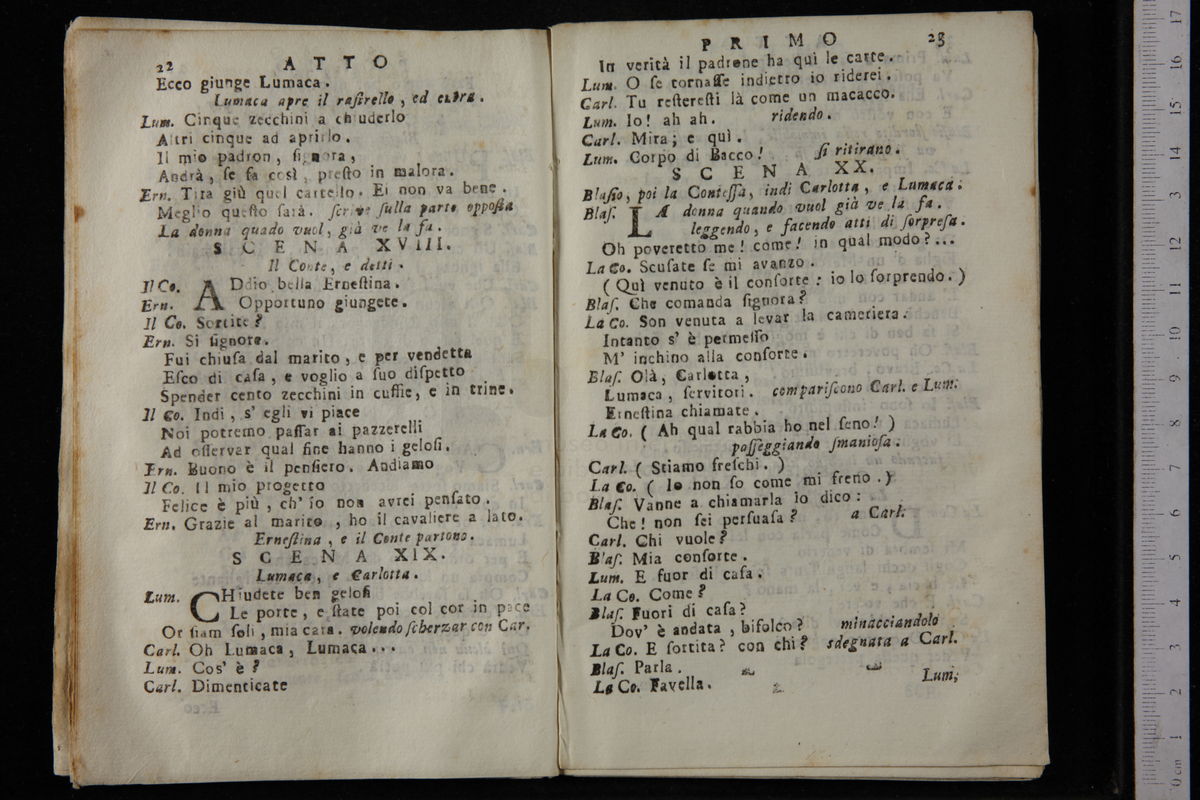 22 ATTO
Ecco giunge Lumaca.
Lumaca apre il raſtrello, ed entra.
Lum. Cinque zecchini a chiuderlo
Altri cinque ad aprirlo.
Il mio padron, ſignora,
Andrà, ſe fa così, preſto in malora.
Ern. Tira giù quel cartello. Ei non va bene.
Meglio queſto ſarà. ſcrive ſulla parte oppoſta
La donna quado vuol, già ve la fa.
SCENA XVIII.
Il Conte, e detti.
Il Co. ADdio bella Erneſtina.
Ern. Opportuno giungete.
Il Co. Sortite?
Ern. Si ſignore.
Fui chiuſa dal marito, e per vendetta
Eſco di caſa, e voglio a ſuo diſpetto
Spender cento zecchini in cuffie, e in trine.
Il Co. Indi, s' egli vi piace
Noi potremo paſſar ai pazzerelli
Ad oſſervar qual fine hanno i geloſi.
Ern. Buono è il penſiero. Andiamo
Il Co. Il mio progetto
Felice è più, ch' io non avrei penſato.
Ern. Grazie al marito, ho il cavaliere a lato.
Erneſtina, e il Conte partono.
SCENA XIX.
Lumaca, e Carlotta.
Lum. CHiudete ben geloſi
Le porte, e ſtate poi col cor in pace
Or ſiam ſoli, mia cara. volendo ſcherzar con Car.
Carl. Oh Lumaca, Lumaca...
Lum. Cos' è?
Carl. Dimenticate
PRIMO 23
In verità il padrone ha quì le carte.
Lum. O ſe tornaſſe indietro io riderei.
Carl. Tu reſtereſti là come un macacco.
Lum. Io! ah ah. ridendo.
Carl. Mira; e quì.
Lum. Corpo di Bacco! ſi ritirano.
SCENA XX.
Blaſio, poi la Conteſſa, indi Carlotta, e Lumaca.
Blaſ. LA donna quando vuol già ve la fa.
leggendo, e facendo atti di ſorpreſa.
Oh poveretto me! come! in qual modo?...
La Co. Scuſate ſe mi avanzo.
(Quì venuto è il conſorte: io lo ſorprendo.)
Blaſ. Che comanda ſignora?
La Co. Son venuta a levar la cameriera.
Intanto s' è permeſſo
M' inchino alla conſorte.
Blaſ. Olà, Carlotta,
Lumaca, ſervitori. compariſcono Carl. e Lum.
Erneſtina chiamate.
La Co. (Ah qual rabbia ho nel ſeno!)
paſſeggiando ſmanioſa.
Carl. (Stiamo freſchi.)
La Co. (Io non ſo come mi freno.)
Blaſ. Vanne a chiamarla lo dico:
Che! non ſei perſuaſa? a Carl.
Carl. Chi vuole?
Blaſ. Mia conſorte.
Lum. E fuor di caſa.
La Co. Come?
Blaſ. Fuori di caſa?
Dov' è andata, bifolco? minacciandolo
La Co. E ſortita? con chi? sdegnata a Carl.
Blaſ. Parla.
La Co. Favella.
Lum.